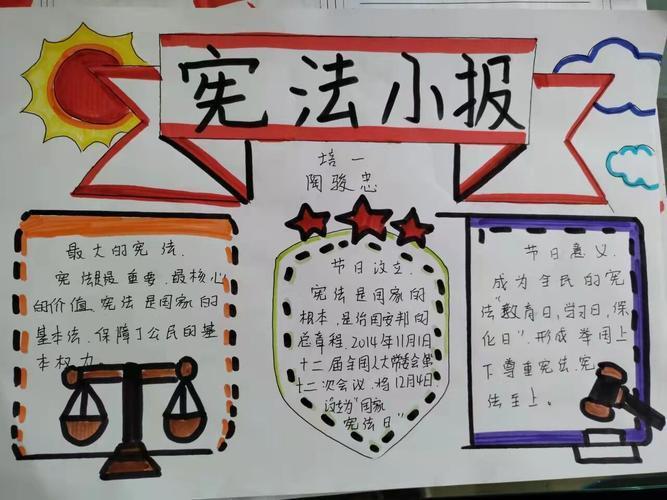 宪法小报
培一
陶骏忠
最大的宪法.
宪法是最重要.最核心
的价值.宪法是国家的
基本法.保障了公民的基
本权力
节日设立.
宪法是国家的
根本,是治国安邦的
总章程.2014年11月1日
十二届全国人大常委会第
十二次会议.将12月4日
设为“国家
宪法日”
节日意义.
成为全民的宪
法“教育日,学习日,保
化日”.形成举国上
下尊重宪法.宪
法至上。